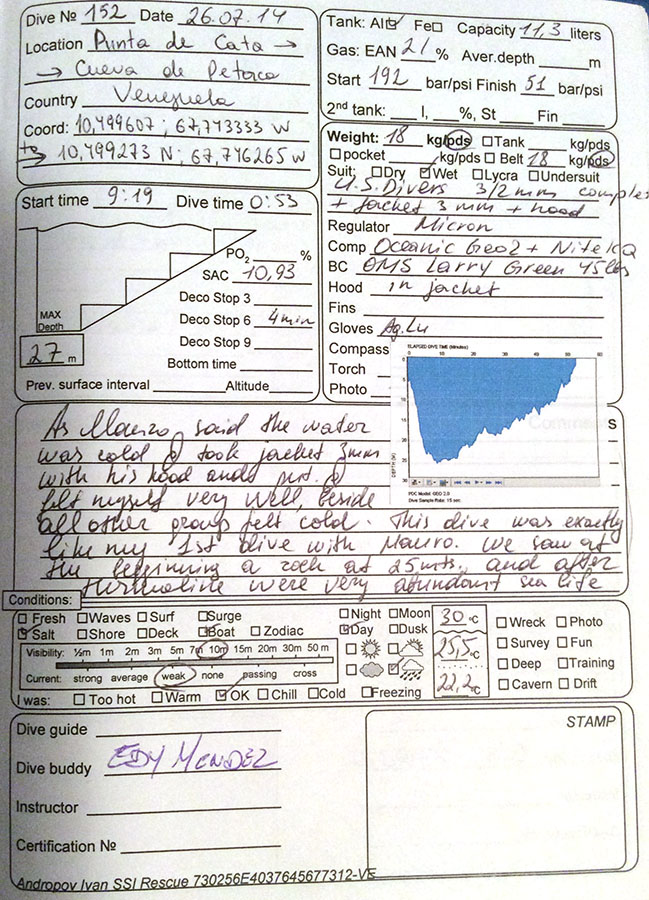 Dive № 152 Date 26.07.14
Location Punta de Cata →
→ Cueva de Petaca
Country Venezuela
Coord: 10,499607 ; 67,743333 W
to → 10,499273 N ; 67,746265 W
Tank: Al Fe Capacity 11,3 liters
Gas: EAN 21 % Aver.depth m
Start 192 bar/psi Finish 51 bar/psi
2nd tank: l, %, St Fin
Weight: 18 kg/pds Tank kg/pds
pocket kg/pds Belt 18 kg/pds
Suit: Dry Wet Lycra Undersuit
U.S. Divers 3/2mm complet
+ jacket 3 mm + hood
Regulator Micron
Comp Oceanic Geo2 + Nitek Q
BC OMS Larry Green 45lbs
Hood in jacket
Fins
Gloves Aq.Lu
Compass
Torch
Photo
Start time 9:19 Dive time 0:53
PO2 %
SAC 10,93
Deco Stop 3
Deco Stop 6 4min
Deco Stop 9
Bottom time
MAX
Depth
27 m
Prev. surface interval Altitude
ELAPSED DIVE TIME (Minutes)
0 10 20 30 40 50 60
0
5
10
15
20
25
30
DEPTH (M)
PDC Model: GEO 2.0
Dive Sample Rate: 15 sec
S
As Mauro said the water
was cold I took jacket 3mm
with his hood and I
felt myself very well, beside
all other group felt cold. This dive was exactly
like my 1st dive with Mauro. We saw at
the beginning a rock at 25mts. and after
were very abundant sea life
Conditions:
Fresh Waves Surf Surge
Salt Shore Deck Boat Zodiac
Visibility: ½m 1m 3m 5m 7m 10m 15m 20m 30m 50 m
Current: strong average weak none passing cross
I was: Too hot Warm OK Chill Cold Freezing
Night Moon
Day Dusk
30 °C
25,5 °C
22,2 °C
Wreck Photo
Survey Fun
Deep Training
Cavern Drift
Dive guide
Dive buddy EDY MENDEZ
Instructor
Certification №
STAMP
Andropov Ivan SSI Rescue 730256E4037645677312-VE